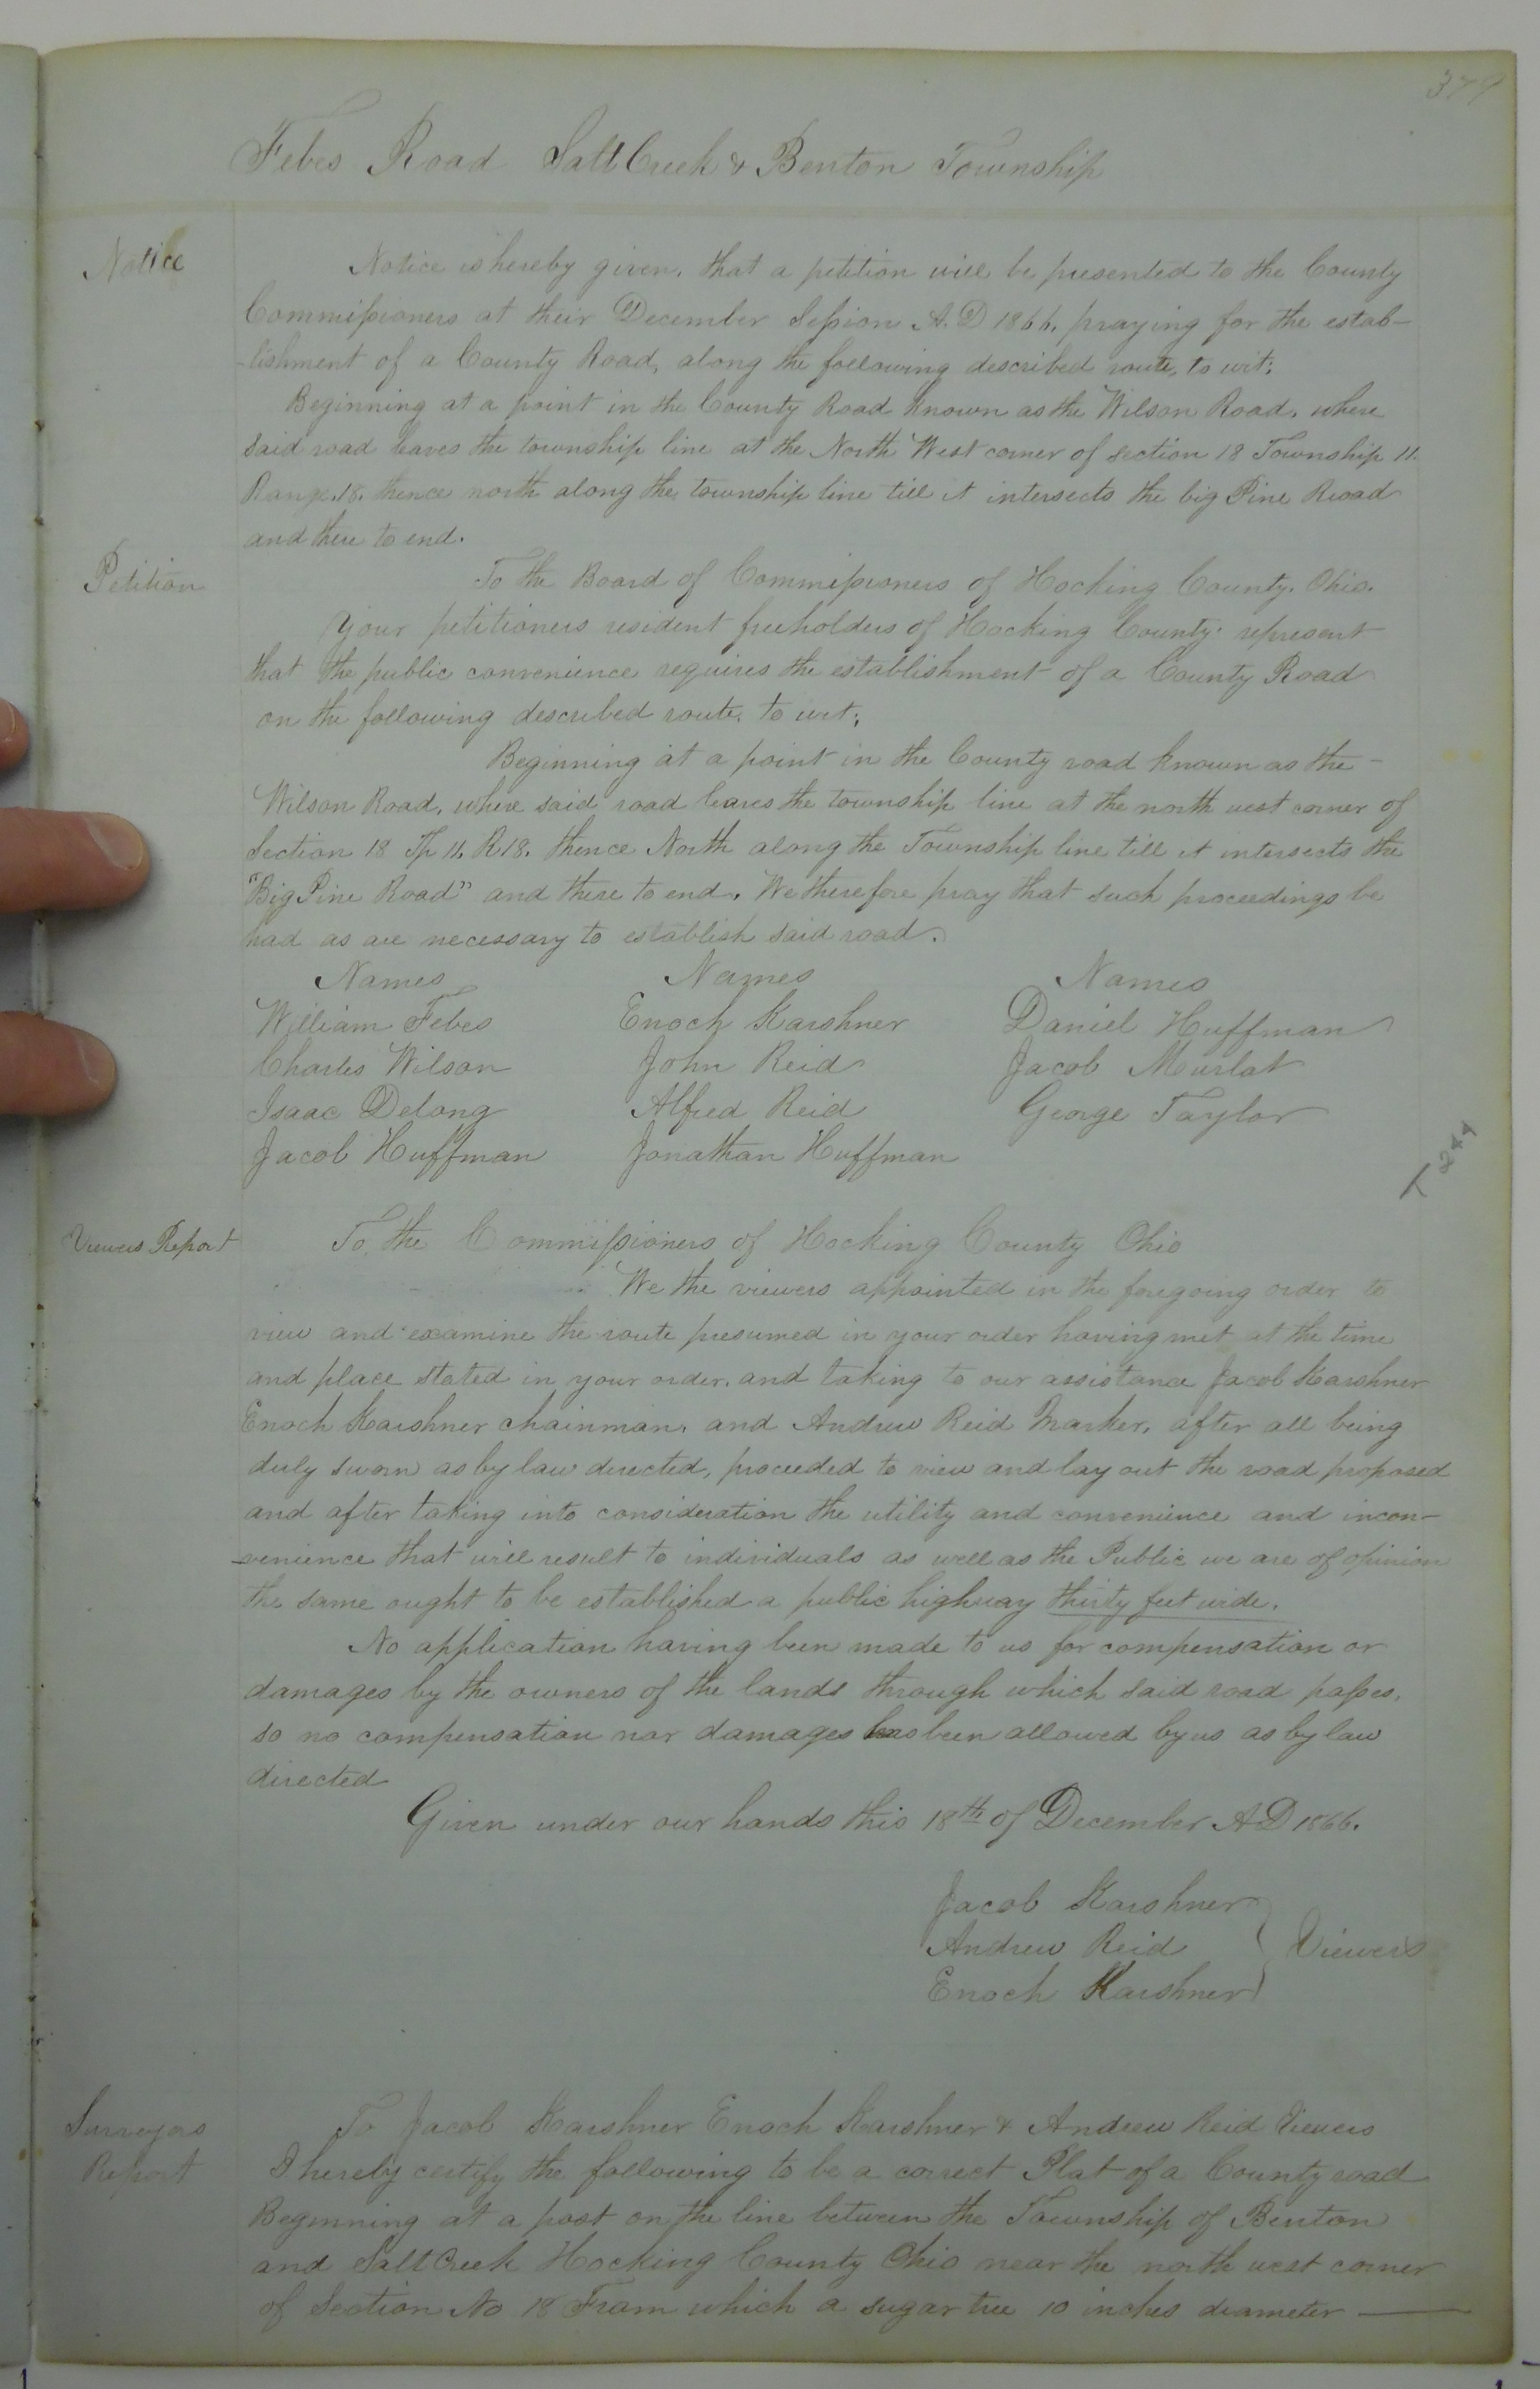 379
Febes Road SaltCreek & Benton Township
Notice
Notice is hereby given, that a petition will be presented to the County
Commissioners at their December Session A.D 1866, praying for the estab-
-lishment of a County Road, along the following described route, to wit;
Beginning at a point in the County Road known as the Wilson Road, where
said road leaves the township line at the North West corner of section 18 Township 11.
Range. 18. thence north along the township line till it intersects the big Pine Rroad
and there to end.
Petition
To the Board of Commissioners of Hocking County. Ohio.
Your petitioners resident freeholders of Hocking County represent
that the public convenience requires the establishment of a County Road
on the following described route, to wit;
Beginning at a point in the County road known as the -
Wilson Road, where said road leaves the township line at the north west corner of
Section 18 Tp 11. R.18. thence North along the Township line till it intersects the
"Big Pine Road" and there to end. We therefore pray that such proceedings be
had as are necessary to establish said road.
Names Names Names
William Febes Enoch Karshner Daniel Huffman
Charles Wilson John Reid Jacob Murlat
Isaac Delong Alfred Reid George Taylor
Jacob Huffman Jonathan Huffman
Viewers Report
To the Commissioners of Hocking County Ohio
We the viewers appointed in the foregoing order to
view and examine the route presumed in your order having met at the time
and place stated in your order, and taking to our assistance Jacob Karshner
Enoch Karshner chainman, and Andrew Reid Marker, after all being
duly sworn as by law directed, proceeded to view and lay out the road proposed
and after taking into consideration the utility and convenience and incon-
-venience that will result to individuals as well as the Public we are of opinion
the same ought to be established a public highway thirty feet wide.
No application having been made to us for compensation or
damages by the owners of the lands through which said road passes,
so no compensation nor damages has been allowed by us as by law
directed
Given under our hands this 18th of December AD 1866.
Jacob Karshner
Andrew Reid } Viewers
Enoch Karshner
Surveyors
Report
To Jacob Karshner Enoch Karshner & Andrew Reid Viewers
I hereby certify the following to be a correct Plat of a County road
Beginning at a post on the line between the Township of Benton
and SaltCreek Hocking County Ohio near the north west corner
of Section No 18 From which a sugar tree 10 inches diameter